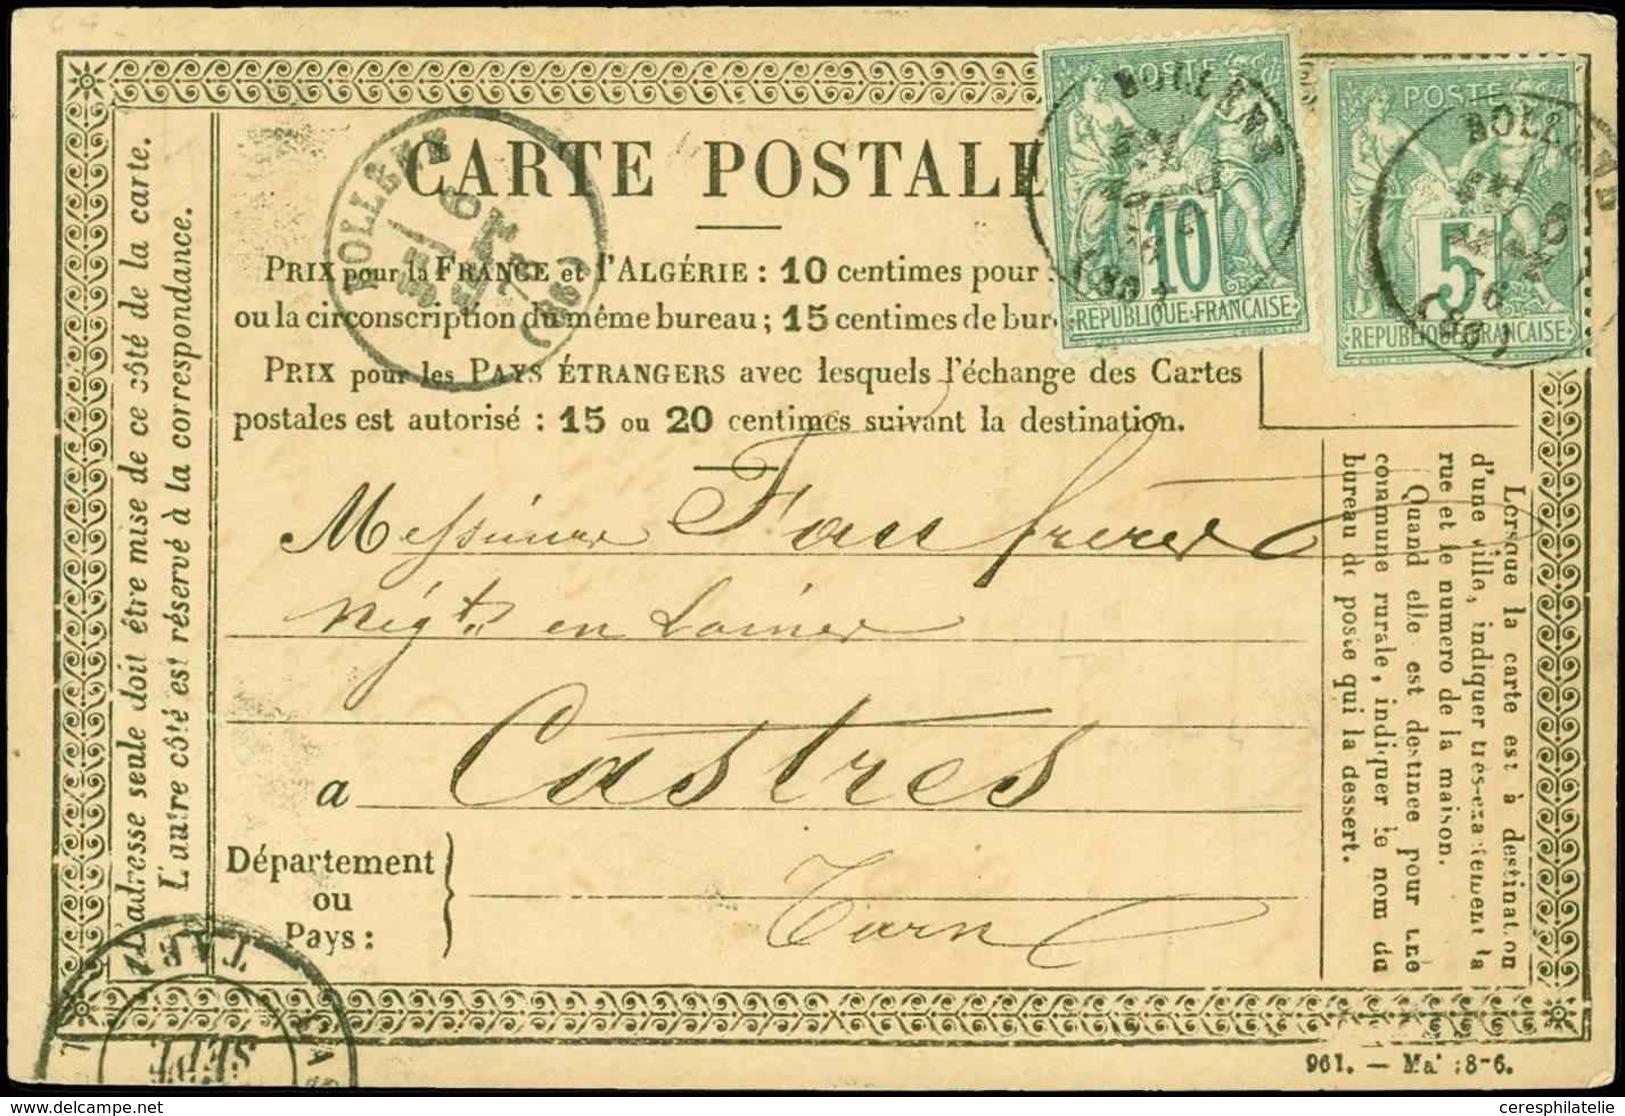 CARTE POSTALE
PRIX pour la FRANCE et l'ALGÉRIE : 10 centimes pour
ou la circonscription du même bureau ; 15 centimes de bur
PRIX pour les PAYS ÉTRANGERS avec lesquels l'échange des Cartes
postales est autorisé : 15 ou 20 centimes suivant la destination.
Messieurs Fau frères
Négts en Laines
a Castres
Département
ou
Pays :
Tarn
L'adresse seule doit être mise de ce côté de la carte.
L'autre côté est réservé à la correspondance.
Lorsque la carte est à destination
d'une ville, indiquer très-exactement la
rue et le numero de la maison.
Quand elle est destinée pour une
commune rurale, indiquer le nom du
bureau de poste qui la dessert.
POSTE
10
REPUBLIQUE FRANÇAISE
POSTE
5
REPUBLIQUE FRANÇAISE
BOLLENE
BOLLENE
BOLLENE
TARN
SEPT
961. — Mai 1876.
delcampe.net
ceresphilatelie